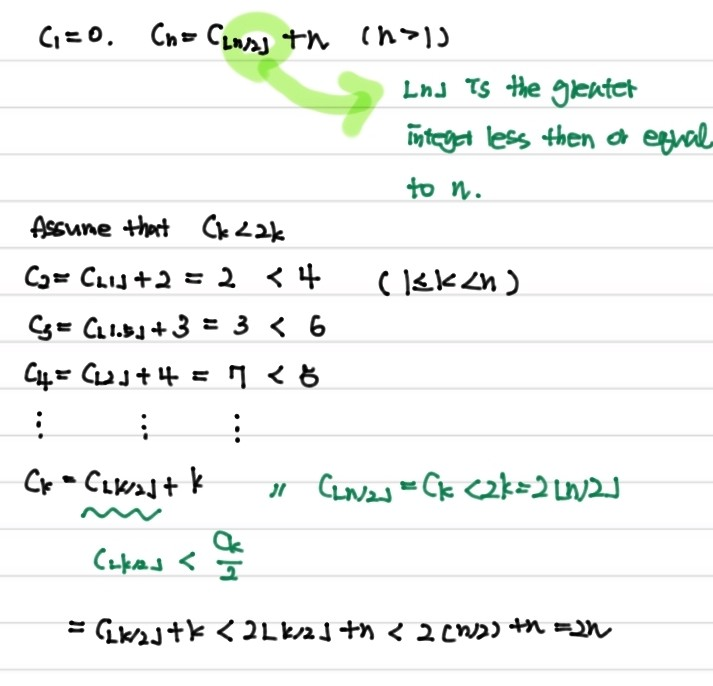 C₁=0. Cₙ= C⌊n/2⌋ +n (n>1)
⌊n⌋ is the greater
integer less then or equal
to n.
Assume that Cₖ<2k
C₂= C⌊1⌋+2 = 2 < 4 (1≤k<n)
C₃= C⌊1.5⌋+3 = 3 < 6
C₄= C⌊2⌋+4 = 7 < 8
⋮ ⋮ ⋮
Cₖ = C⌊k/2⌋+k 〃 C⌊n/2⌋=Cₖ<2k=2⌊n/2⌋
C⌊k/2⌋ <
= C⌊k/2⌋+k < 2⌊k/2⌋+n < 2(n/2)+n =2n